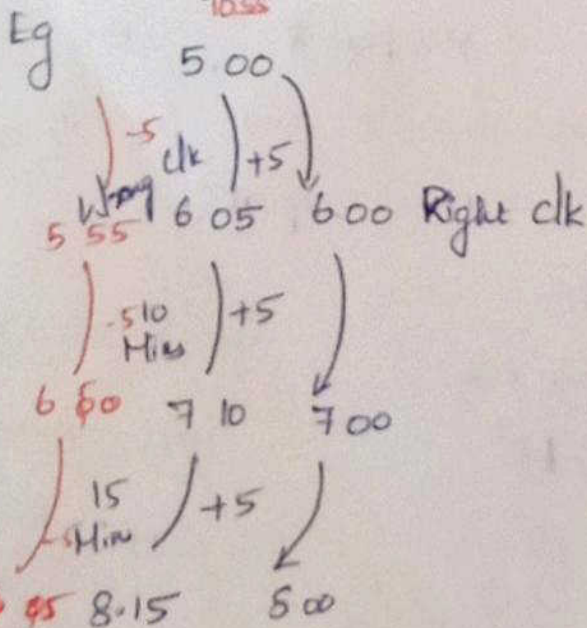 loss
Eg
5 00
-5 clk +5
Wrong
5 55 6 05 6 00 Right clk
-5 10 +5
Mins
6 50 7 10 7 00
15 +5
Min
45 8.15 8 00